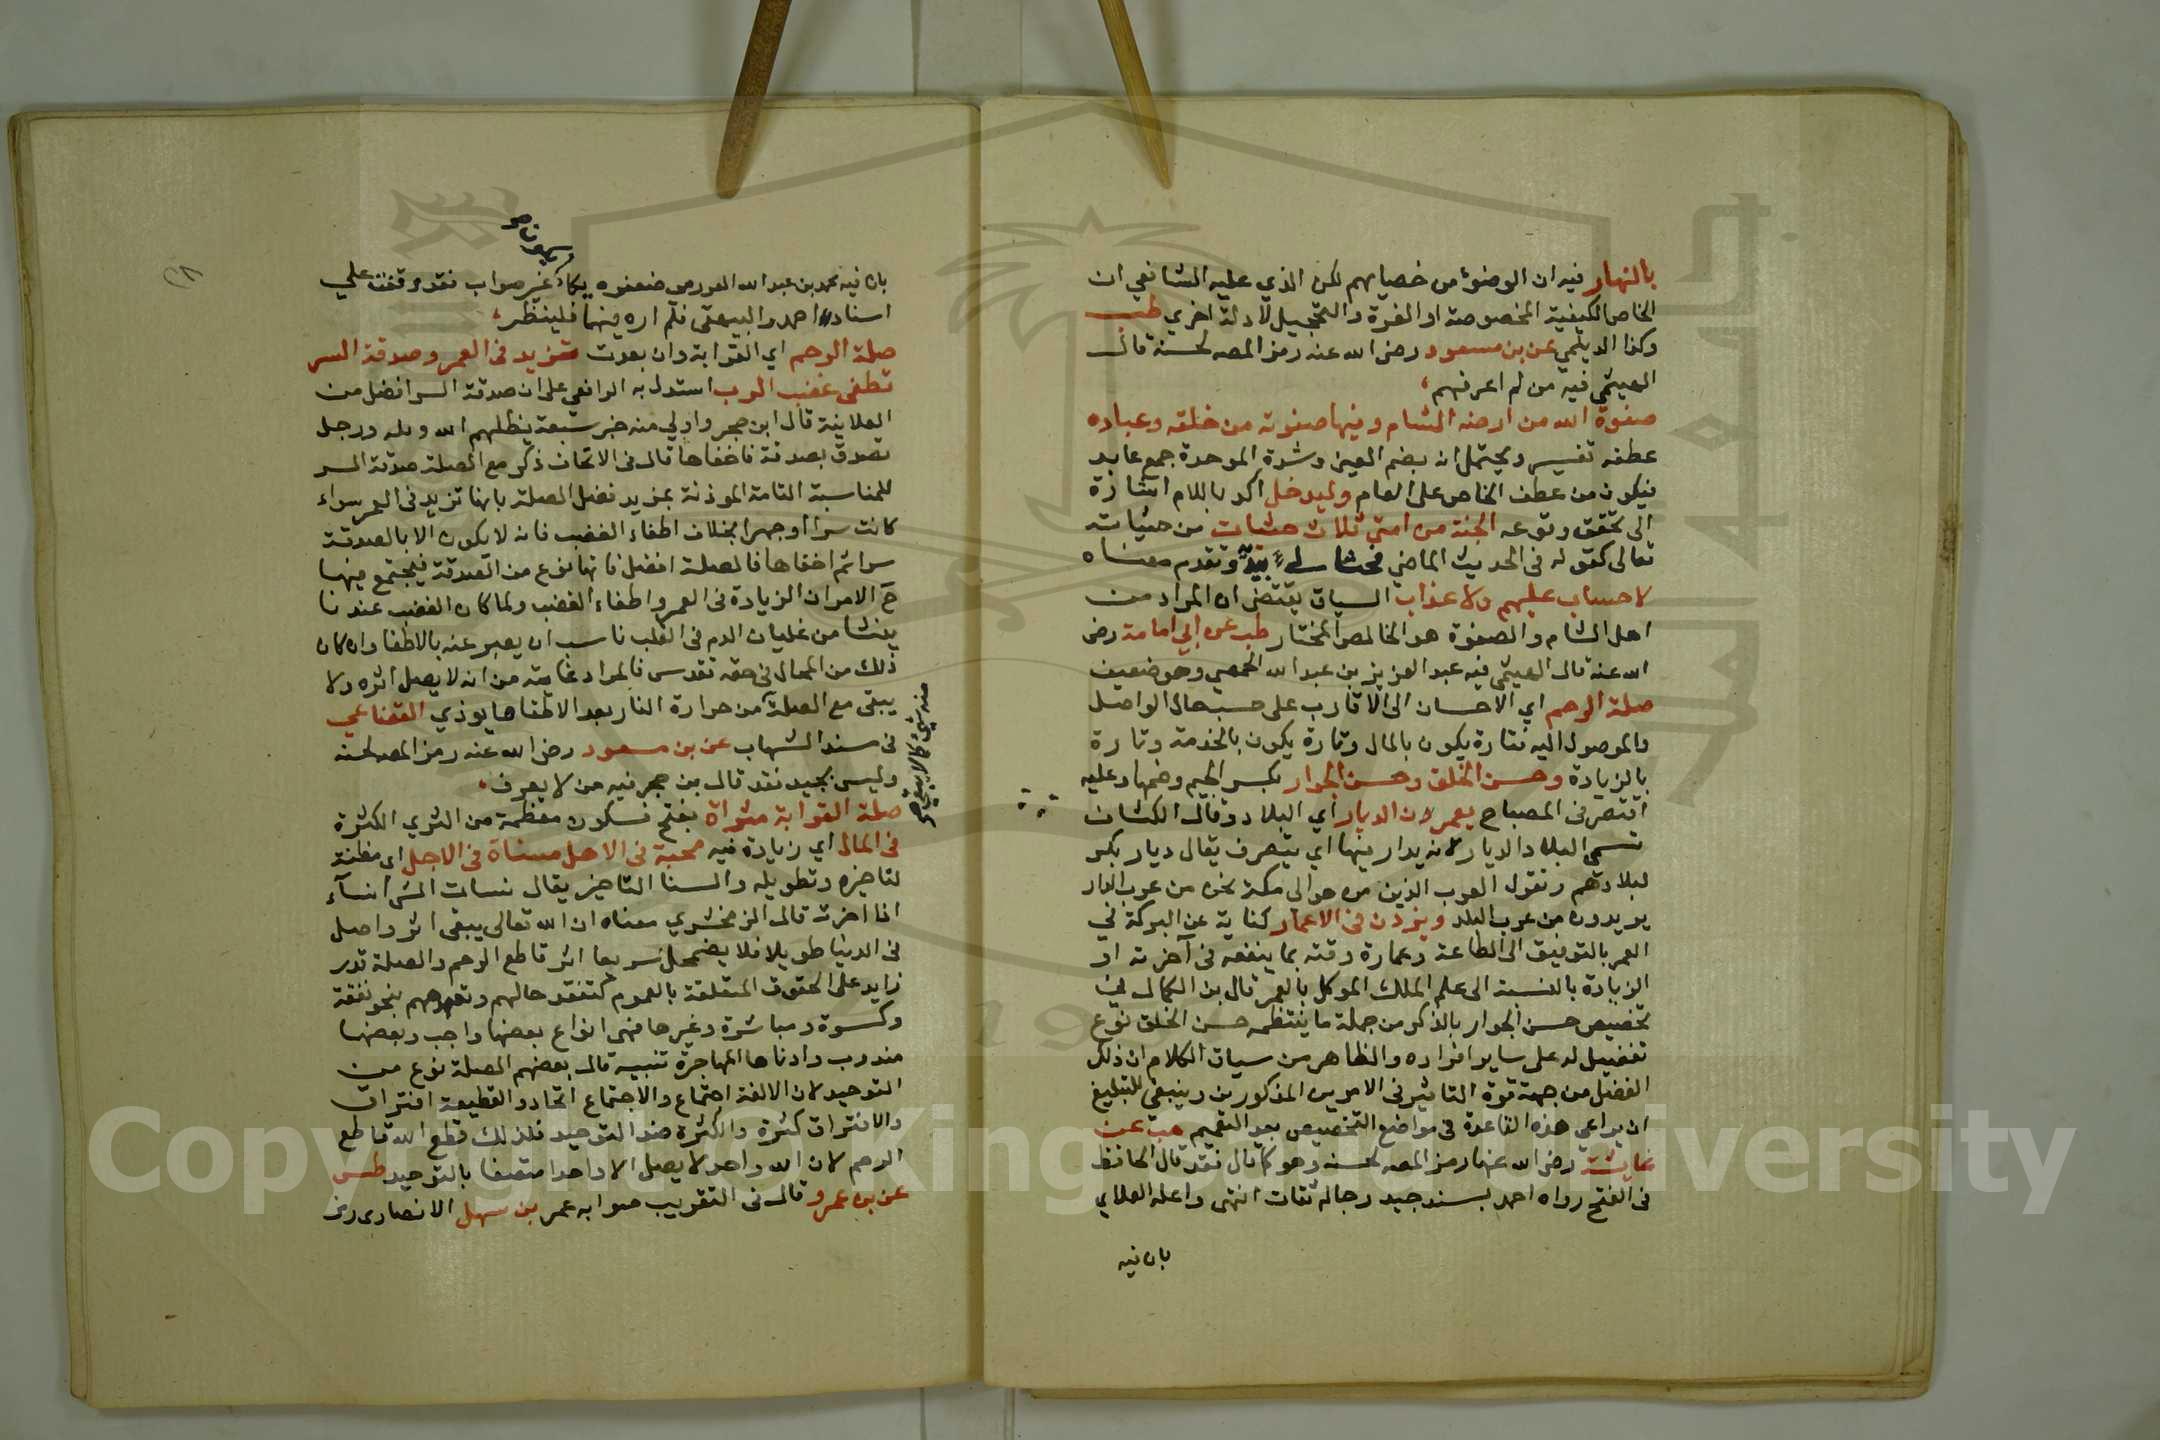 بالنهار فيه ان الوضوء من خصايهم لكن الذي عليه الشافعي ان
الخاص الكيفية المخصوصة او الغرة والتحجيل لادلة اخري طب
وكذا الديلمي عن بن مسعود رضي الله عنه رمز المصه لحسنه قال
الهيثمي فيه من لم اعرفهم
صفوة الله من ارضه الشام وفيها صفوته من خلقه وعباده
عطف تفسير ويحتمل ان بضم العين وشدة الموحدة جمع عابد
فيكون من عطف الخاص على العام وليدخل اكد باللام اشارة
الى تحقق وقوعه الجنة من امتي ثلاث حثيات من حثياته
تعالى كقوله في الحديث الماضي فحثا لي بيديه وتقدم معناه
لا حساب عليهم ولا عذاب السياق يقتضي ان المراد من
اهل الشام والصفوة هو الخالص المختار طب عن ابي امامة رضي
الله عنه قال الهيثمي فيه عبد العزيز بن عبد الله الحمصي وهو ضعيف
صلة الرحم اي الاحسان الى الاقارب على حسب حال الواصل
والموصول اليه فتارة يكون بالمال وتارة يكون بالخدمة وتارة
بالزيادة وحسن الخلق وحسن الجوار بكسر الجيم وضمها وعليه
اقتصر في المصباح يعمرون الديار اي البلاد وقال الكشاف
تسمي البلاد الديار لانه يدار فيها اي يتصرف يقال ديار بكر
لبلادهم وتقول العرب الذين من حوالي مكة نحن من عرب الدار
يريدون من عرب البلد ويزدن في الاعمار كناية عن البركة في
العمر بالتوفيق الى الطاعة وعمارة وقته بما ينفعه في آخرته او
الزيادة بالنسبة الى علم الملك الموكل بالعمر قال بن الكمال في
تخصيص حسن الجوار بالذكر من جملة ما ينتظمه حسن الخلق نوع
تفضيل له على ساير افراده والظاهر من سياق الكلام ان ذلك
الفضل من جهة قوة التاثير في الامرين المذكورين وينبغي للتبليغ
ان يراعى هذه القاعدة في مواضع التخصيص بعد التعميم هب عن
عايشة رضي الله عنها رمز المصه لحسنه وهو كما قال فقد قال الحافظ
في الفتح رواه احمد بسند جيد رجاله ثقات انتهى واعله العلاي
بان فيه
بان فيه محمد بن عبد الله العورمي ضعفوه يكاد غير صواب فقد وقفت علي
اسناد احمد والبيهقي فلم اره فيهما فلينظر
صلة الرحم اي القرابة وان بعدت تزيد في العمر وصدقة السر
تطفي غضب الرب استدل به الرافعي على ان صدقة السر افضل من
العلانية قال ابن حجر واولي منه خبر سبعة يظلهم الله وله ورجل
تصدق بصدقة فاخفاها قال في الاتحاف ذكر مع الصلة صدقة السر
للمناسبة التامة الموذنة بمزيد فضل الصلة بانها تزيد في العمر سواء
كانت سرا او جهرا بخلاف اطفاء الغضب فانه لا يكون الا بالصدقة
سرا ثم اخفاها فالصلة افضل فانها نوع من الصدقة فيجتمع فيها
ح الامران الزيادة في العمر واطفاء الغضب ولما كان الغضب عندنا
ينشا من غليان الدم في القلب ناسب ان يعبر عنه بالاطفا وان كان
ذلك من المحال في حقه تقدس فالمراد غايته من انه لا يصل اثره ولا
يبقى مع الصلة من حرارة النار بعد الاطفا ما يوذي القضاعي
في سند الشهاب عن بن مسعود رضي الله عنه رمز المصه لحسنه
وليس بجيد فقد قال بن حجر فيه من لا يعرف
صلة القرابة مثراة بفتح فسكون مفظمة من الثري الكثرة
في المال اي زيادة فيه محبة في الاهل منساة في الاجل اي مظنة
لتاخيره وتطويله والنسا التاخير يقال نسات الشي انسآء
اذا اخرت قال الزمخشري معناه ان الله تعالى يبقى اثر واصل
في الدنيا طويلا فلا يضمحل سريعا اثر قاطع الرحم والصلة قدر
زايد على الحقوق المتعلقة بالعموم كتفقد حالهم وتعهدهم بنحو نفقة
وكسوة ومباشرة وغيرها فهي انواع بعضها واجب وبعضها
مندوب وادناها المهاجرة تنبيه قال بعضهم الصلة نوع من
التوحيد لان الالفة اجتماع والاجتماع اتحاد والقطيعة افتراق
والافتراق كثرة والكثرة ضد التوحيد فلذلك قطع الله قاطع
الرحم لان الله واحد لا يصل الا واحدا متصفا بالتوحيد طس
عن بن عمرو قال في التقريب صوابه عمر بن سهل الانصاري رضي
Copyright © King Saud University
1957